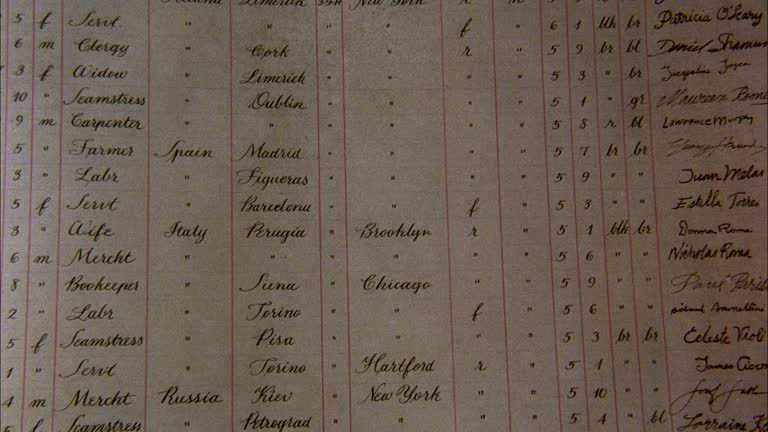 Limerick " New York
5 f Servt. " " " " f " 6 1 blk br Patricia O'Leary
6 m Clergy " Cork " " r " 5 9 br bl Daniel
3 f Widow " Limerick " " " " 5 3 " br Jacqueline Joyce
10 " Seamstress " Dublin " " " " 5 1 " gr Maureen
9 m Carpenter " " " " " " 5 8 r bl Lawrence Murphy
5 " Farmer Spain Madrid " " " " 5 7 br br
3 " Labr " Figueras " " " " 5 9 " " Juan Melas
5 f Servt " Barcelona " " f " 5 3 " " Estella Torres
3 " Wife Italy Perugia " Brooklyn r " 5 1 blk br Donna Roma
6 m Mercht " " " " " " 5 6 " " Nicholas Roma
8 " Bookeeper " Siena " Chicago " " 5 9 " " Paul
2 " Labr " Torino " " f " 5 6 " "
5 f Seamstress " Pisa " " " " 5 3 br br Celeste Violi
1 " Servt " Torino " Hartford r " 5 1 " " James
4 m Mercht Russia Kiev " New York " " 5 10 " "
5 f Seamstress " Petrograd " " " " 5 4 " bl Lorraine